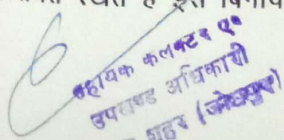 सहायक कलक्टर एवं
उपखण्ड अधिकारी
शहर (जोधपुर)